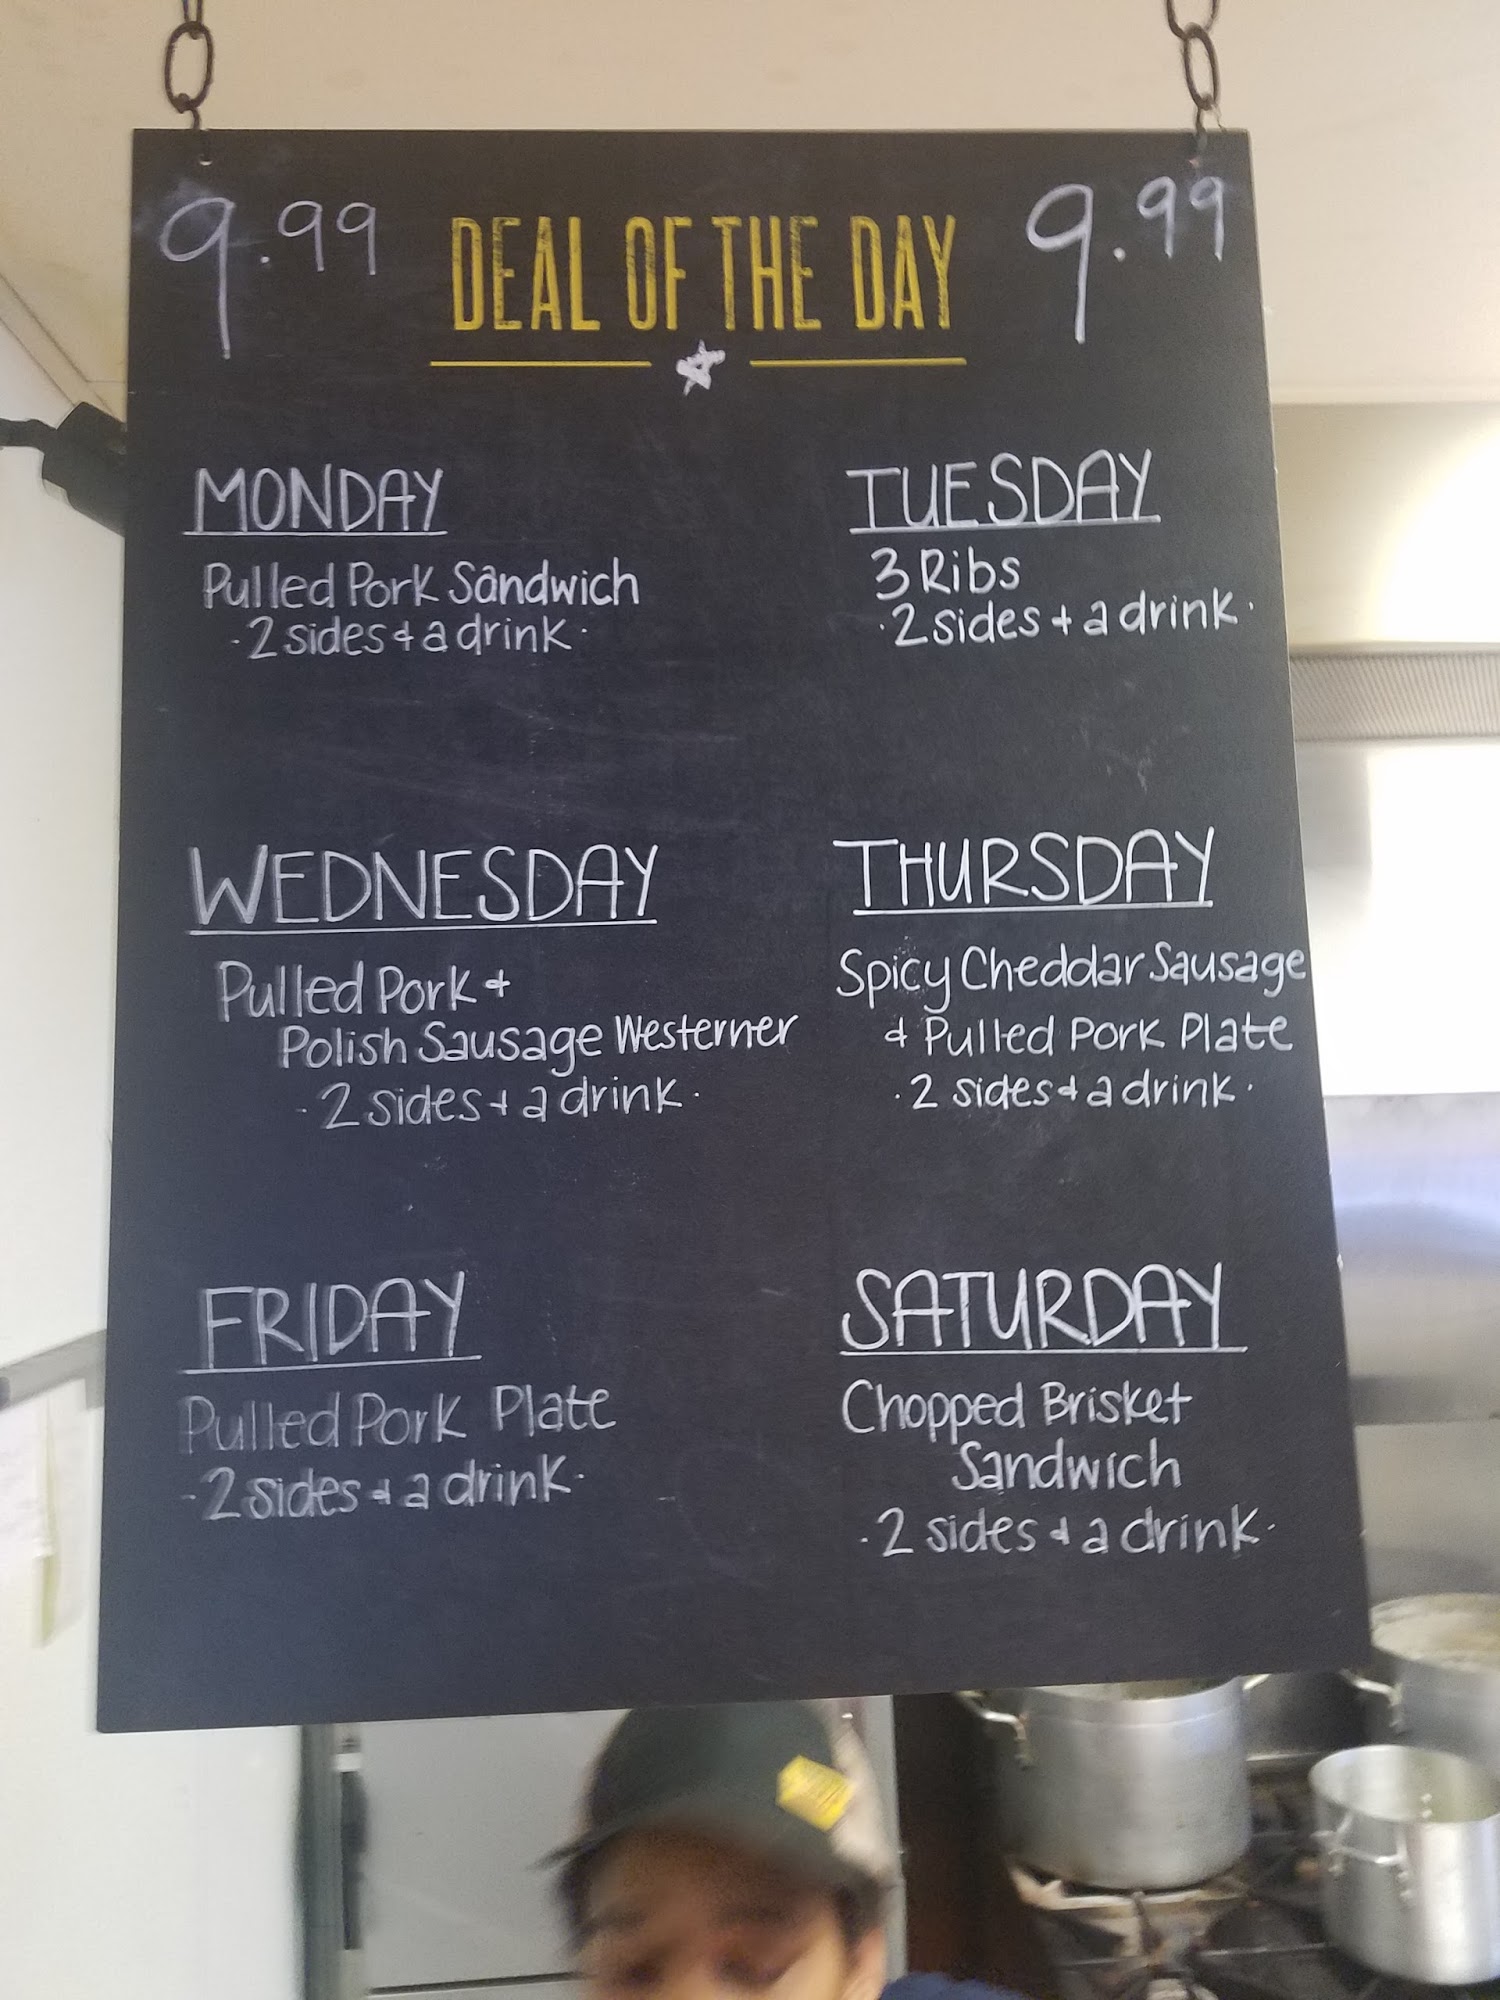 9.99 DEAL OF THE DAY 9.99
MONDAY
Pulled Pork Sandwich
· 2 sides & a drink ·
TUESDAY
3 Ribs
· 2 sides + a drink ·
WEDNESDAY
Pulled Pork &
Polish Sausage Westerner
· 2 sides + a drink ·
THURSDAY
Spicy Cheddar Sausage
& Pulled Pork Plate
· 2 sides & a drink ·
FRIDAY
Pulled Pork Plate
· 2 sides & a drink ·
SATURDAY
Chopped Brisket
Sandwich
· 2 sides & a drink ·